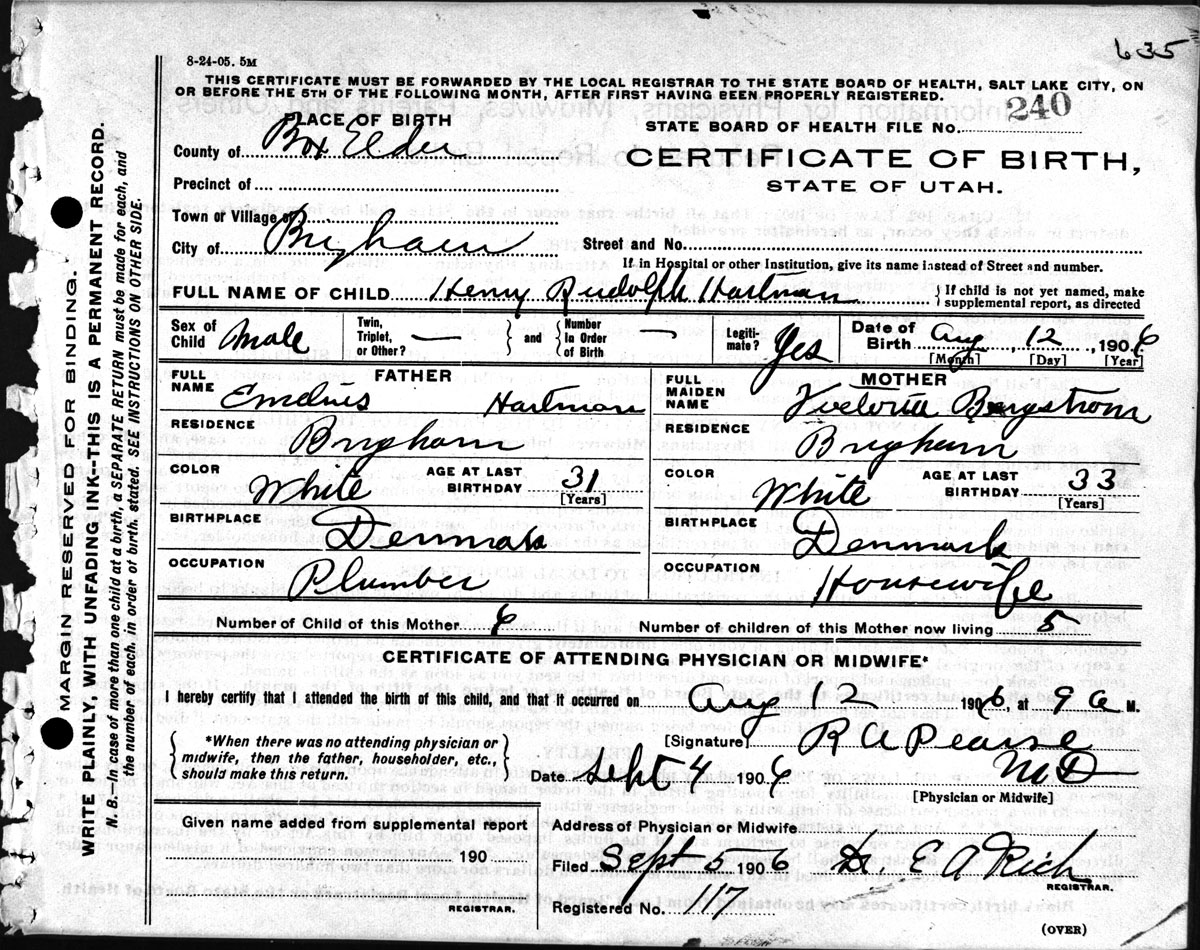 635
8-24-05. 5M
THIS CERTIFICATE MUST BE FORWARDED BY THE LOCAL REGISTRAR TO THE STATE BOARD OF HEALTH, SALT LAKE CITY, ON
OR BEFORE THE 5TH OF THE FOLLOWING MONTH, AFTER FIRST HAVING BEEN PROPERLY REGISTERED.
PLACE OF BIRTH
STATE BOARD OF HEALTH FILE NO. 240
County of Box Elder
CERTIFICATE OF BIRTH,
STATE OF UTAH.
Precinct of
Town or Village of
City of Brigham
Street and No.
If in Hospital or other Institution, give its name instead of Street and number.
FULL NAME OF CHILD Henry Rudolph Hartman { If child is not yet named, make
supplemental report, as directed
Sex of Child Male Twin, Triplet, or Other? — } and { Number In Order of Birth — Legiti- mate? Yes Date of Birth Aug 12, 1906
[Month] [Day] [Year]
FATHER
FULL NAME Hartman
RESIDENCE Brigham
COLOR White AGE AT LAST BIRTHDAY 31 [Years]
BIRTHPLACE Denmark
OCCUPATION Plumber
MOTHER
FULL MAIDEN NAME Bergstrom
RESIDENCE Brigham
COLOR White AGE AT LAST BIRTHDAY 33 [Years]
BIRTHPLACE Denmark
OCCUPATION Housewife
Number of Child of this Mother 6 Number of children of this Mother now living 5
CERTIFICATE OF ATTENDING PHYSICIAN OR MIDWIFE*
I hereby certify that I attended the birth of this child, and that it occurred on Aug 12 1906, at 9 a M.
{ *When there was no attending physician or
midwife, then the father, householder, etc.,
should make this return. }
[Signature] R A Pearse
MD
Date Sept 4 1906
[Physician or Midwife]
Given name added from supplemental report
190
REGISTRAR.
Address of Physician or Midwife
Filed Sept 5 1906 Dr. E A Rich
REGISTRAR.
Registered No. 117
(OVER)
MARGIN RESERVED FOR BINDING.
WRITE PLAINLY, WITH UNFADING INK--THIS IS A PERMANENT RECORD.
N. B.—In case of more than one child at a birth, a SEPARATE RETURN must be made for each, and
the number of each, in order of birth, stated. SEE INSTRUCTIONS ON OTHER SIDE.